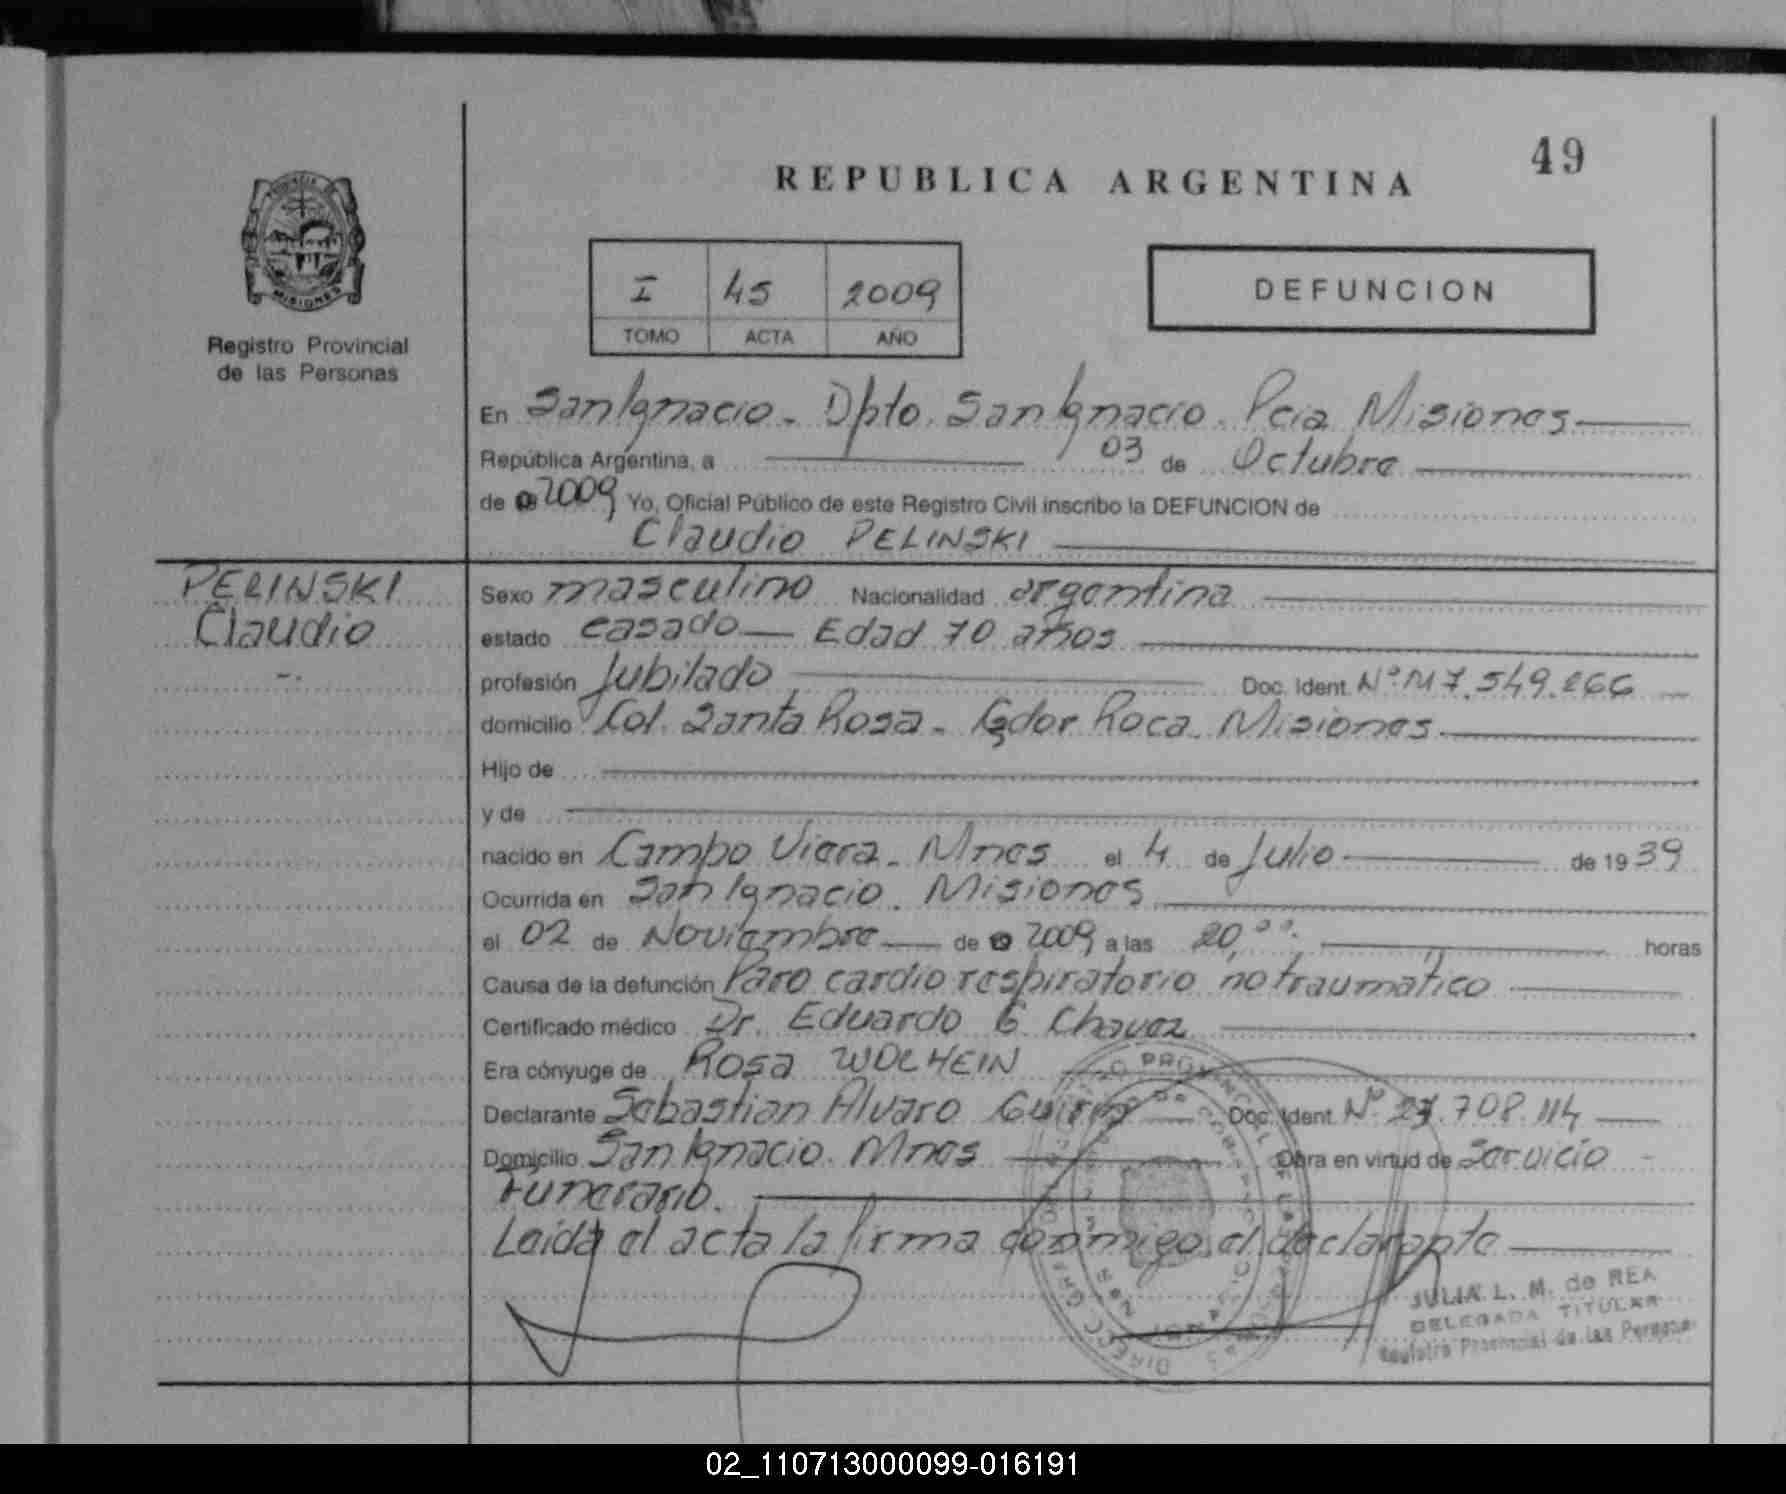 49
REPUBLICA ARGENTINA
PROVINCIA DE
MISIONES
Registro Provincial
de las Personas
I 45 2009
TOMO ACTA AÑO
DEFUNCION
En San Ignacio - Dpto. San Ignacio. Pcia Misiones
República Argentina, a 03 de Octubre
de 2009 Yo, Oficial Público de este Registro Civil inscribo la DEFUNCION de
Claudio PELINSKI
PELINSKI
Claudio
Sexo masculino Nacionalidad argentina
estado casado - Edad 70 años
profesión Jubilado Doc. Ident. Nº M 7.549.266
domicilio Col. Santa Rosa - Gdor Roca. Misiones
Hijo de
y de
nacido en Campo Viera - Mnes el 4 de Julio de 1939
Ocurrida en San Ignacio. Misiones
el 02 de Noviembre de 2009 a las 20,00 horas
Causa de la defunción Paro cardio respiratorio no traumático
Certificado médico Dr. Eduardo G Chavez
Era cónyuge de Rosa WOLHEIN
Declarante Sebastian Alvaro Doc. Ident. Nº 708.114
Domicilio San Ignacio. Mnes Obra en virtud de Servicio
Funerario.
Leida el acta la firma conmigo el declarante
JULIA L. M. de REA
DELEGADA TITULAR
Registro Provincial de las Personas
02_110713000099-016191